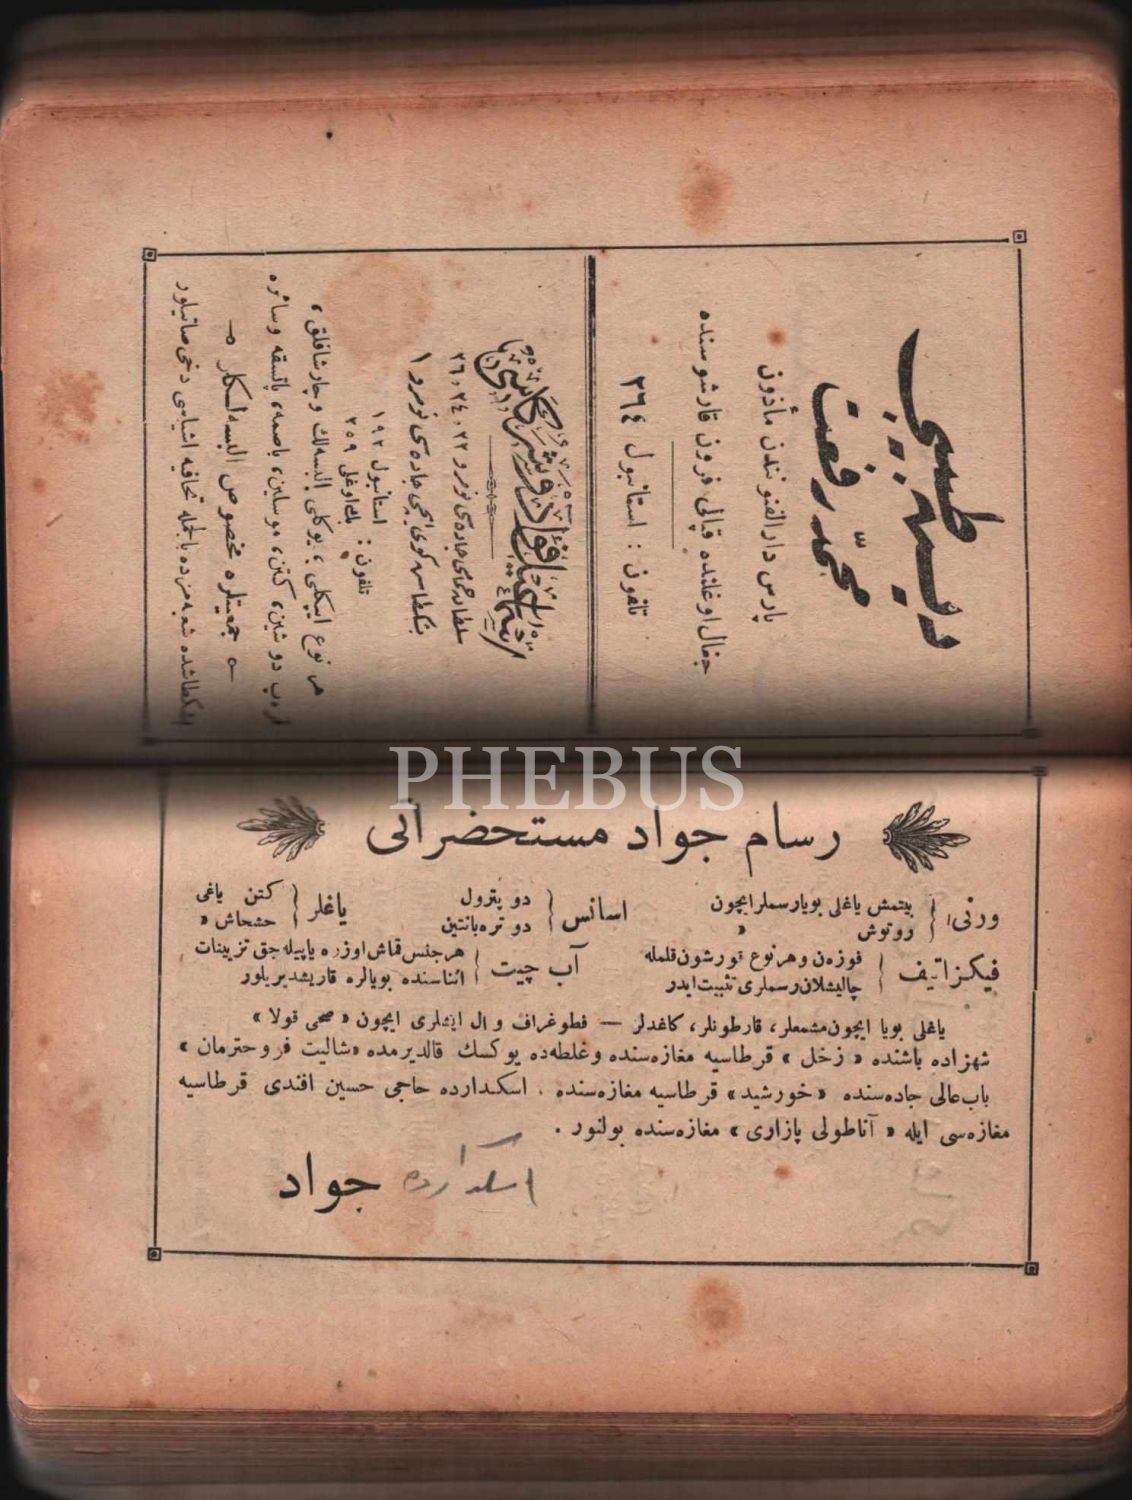 دیش طبیبی
محمد رفعت
پارس دارالفنونندن مأذون
جغال اوغلنده قپالی فرون قارشوسنده
تلفون : استانبول ٣٦٤
سلطان حمامی جاده‌سی نومرو ٢٢، ٢٤، ٢٦
بشکطاش کوی ایچی جاده‌سی نومرو ١
تلفون : استانبول ١٩٢
بك اوغلی ٢٥٩
هر نوع ایپکلی ، یوکلی البسه‌لك وچارشافلق ،
دوشین، کتن، موسلین، باصمه، پاتسقه وسائره
جمعیتلره مخصوص البسه‌لکلر
بشکطاشده شعبه‌مزده بالجمله تحافیه اشیاسی دخی صاتیلور
PHEBUS
رسام جواد مستحضراتی
ورنی، بیتمش یاغلی بویارسملرایچون
روتوش »
اسانس دو پترول
دو تره‌بانتین
یاغلر کتن یاغی
حشحاش »
فیکزاتیف فوزه‌ن وهرنوع قورشون قلمله
چالیشلان رسملری تثبیت ایدر
آب چیت هرجنس قماش اوزره یاپیله‌جق تزیینات
اثناسنده بویالره قاریشدیریلور
یاغلی بویا ایچون مشمعلر، قارطونلر، کاغدلر — فطوغراف و ال ایشلری ایچون « صحی قولا »
شهزاده باشنده « زخل » قرطاسیه مغازه‌سنده وغلطه‌ده یوکسك قالدیرمده «شالیت فروخترمان »
باب‌عالی جاده‌سنده «خورشید» قرطاسیه مغازه‌سنده . اسکدارده حاجی حسین افندی قرطاسیه
مغازه‌سی ایله « آناطولی پازاری» مغازه‌سنده بولنور .
اسکدارده جواد